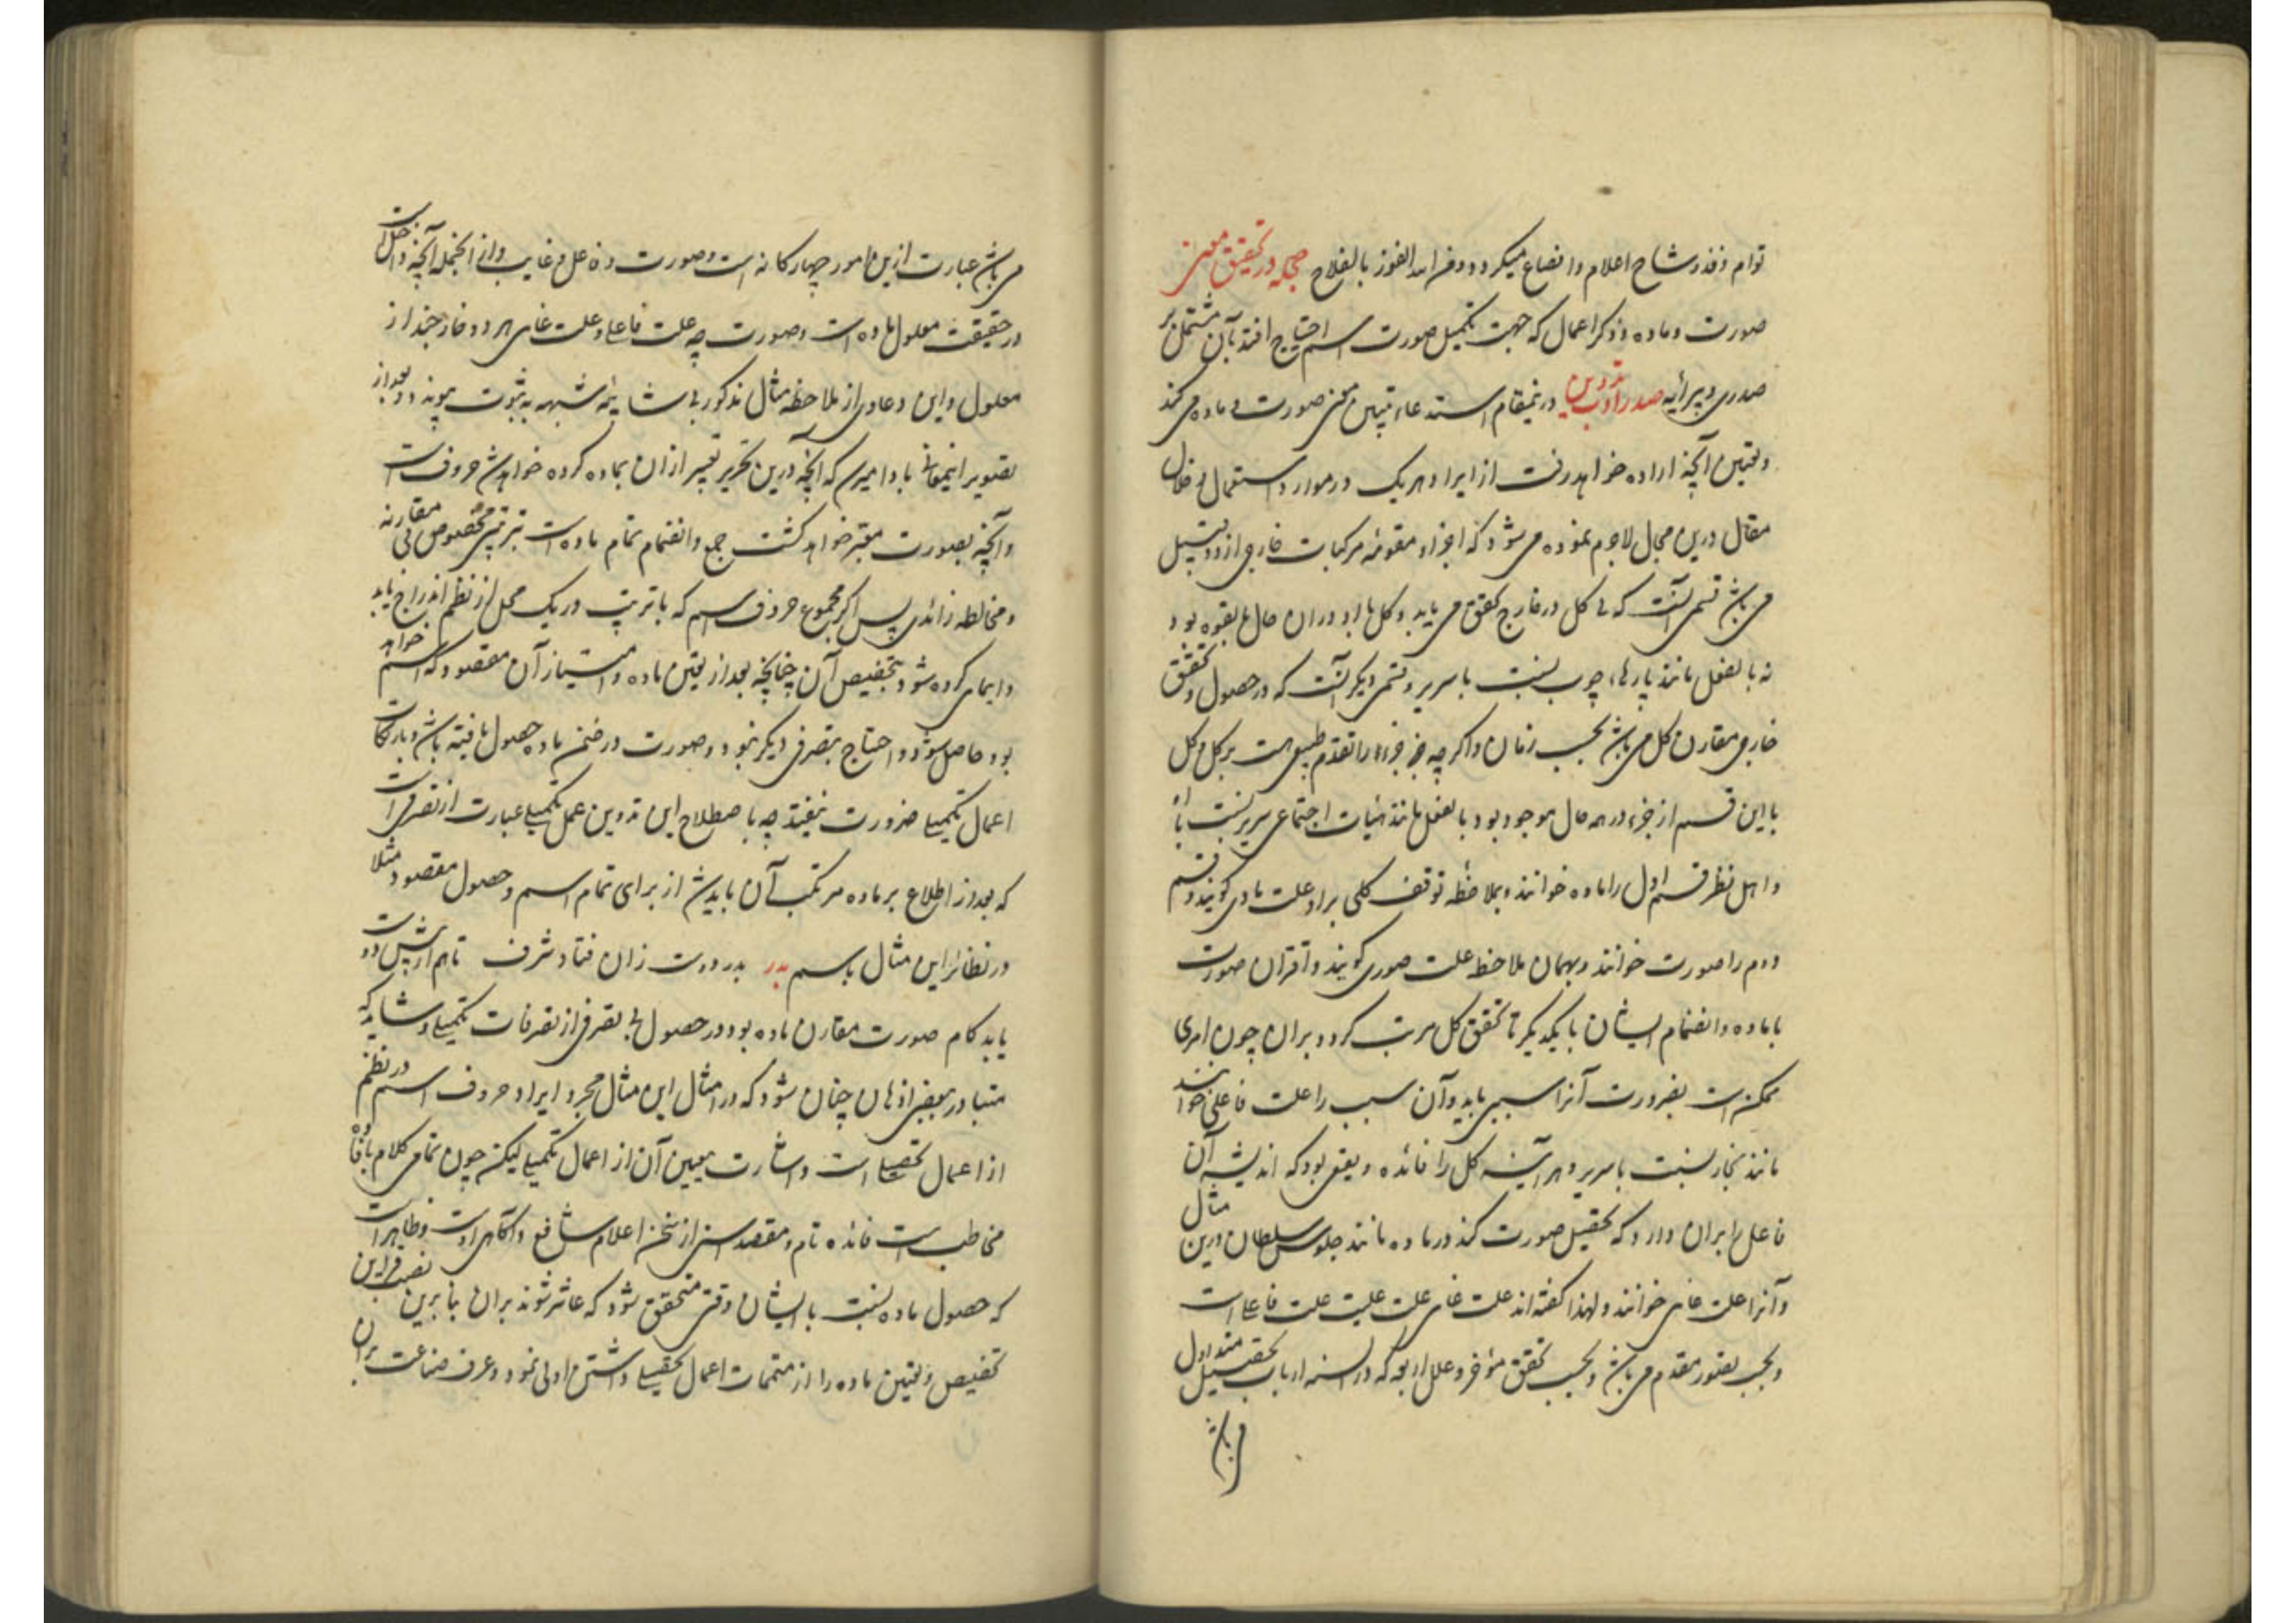 توام وفذ وشاح اعلام وانصاع میکردد ومن الله الفوز بالفلاح حجله در تحقیق معنی
صورت وماده وذکر اعمال که جهت تکمیل صورت اسم احتیاج افتد بآن مشتمل بر
صدری وپیرایه صدر تدوین در ینمقام استدعاء تبیین معنی صورت و ماده می کند
وتعیین آنچه اراده خواهد رفت از ایراد هریک در موارد استعمال در خلال
مقال درین مجال لاجرم نموده می شود که اجزاء مقومهٔ مرکبات خارجی از دو قبیل
می باشد قسمی آنست که بی کل در خارج تحقق می یابد وکل با او در ان حال بالقوه بود
نه بالفعل مانند پارهاء چوب نسبت با سریر وقسمی دیگر آنست که در حصول وتحقق
خارجی مقارن کل می باشد بحسب زمان واکرچه جزء را تقدم طبیعی هست بر کل وکل
با این قسم از جزء در همه حال موجود بود بالفعل مانند هیات اجتماعی سریر نسبت با او
واهل نظر قسم اول را ماده خوانند وبملاحظهٔ توقف کلی براو علت مادی کویند وقسم
دوم را صورت خوانند وبهمان ملاحظه علت صوری کویند واقتران صورت
با ماده وانضمام ایشان با یکدیکر تا تحقق کل مرتب کردد بران چون امری
ممکنست بضرورت آنرا سببی باید وآن سبب را علت فاعلی خوانند
مانند نجار نسبت با سریر وهر آینه کل را فائده ونفعی بود که اندیشه آن
فاعل را بران دارد که تحصیل صورت کند در ماده مانند جلوس سلطان درین مثال
وآنرا علت غایی خوانند ولهذا کفته اند علت غایی علت علیت علت فاعلی است
وبحسب تصور مقدم می باشد وبحسب تحقق مؤخر وعلل اربعه که در السنه ارباب تحصیل متداول
می باشد
می باشد عبارت ازین امور چهارکانه است وصورت وماده فاعل وغایت وازانجمله آنچه داخل است
در حقیقت معلول ماده است وصورت چه علت فاعلی وعلت غایی هر دو خارجند از
معلول واین دعاوی از ملاحظهٔ مثال مذکور بی شایبه شبهه به ثبوت پیوندد وبعد از
تصویر اینمعانی باید دانست که آنچه درین تحریر تعبیر ازان بماده کرده خواهد شد حروفست
وآنچه بصورت معبر خواهد کشت جمع وانضمام تمام ماده است بترتیبی مخصوص بی مقارنه
ومخالطه زائدی پس اکر مجموع حروف اسم که با ترتیب در یک محل از نظم اندراج یابد
وایمای کرده شود بتخصیص آن چنانچه بعد از تعیین ماده وامتیاز آن مقصود که اسم خواهد
بود حاصل شود واحتیاج بتصرفی دیکر نبود وصورت در ضمن ماده حصول یافته باشد وبارتکاب
اعمال تکمیلی ضرورت نیفتد چه باصطلاح این تدوین عمل تکمیلی عبارت از تصرفیست
که بعد از اطلاع بر ماده مرتکب آن باید شد از برای تمام اسم وحصول مقصود مثلا
در نظائر این مثال باسم بدر بدر دوت زان فتاد شرف تا هم ازین دو
یابد کام صورت مقارن ماده بود در حصول بی تصرفی از تصرفات تکمیلی وشاید که
متبادر ببعضی اذهان چنان شود که در امثال این مثال مجرد ایراد حروف اسم در نظم
از اعمال تحصیلی است واشارت بتعیین آن از اعمال تکمیلی لیکن چون تمامی کلام بافاده
مخاطب است فائده تام ومقصد اسنی از سخن اعلام سامع وآکاهی اوست وظاهرا
که حصول ماده نسبت با ایشان وقتی متحقق شود که عاثر شوند بران بنا برین نصب قراین
تخصیص وتعیین ماده را از متممات اعمال تحصیلی داشتن اولی نمود وعرف صناعت بران